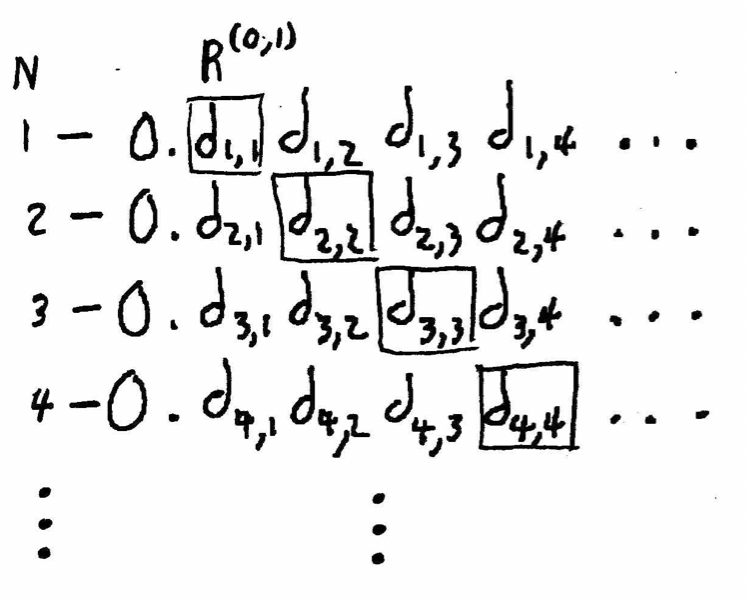 N R^(0,1)
1 — 0. d1,1 d1,2 d1,3 d1,4 ...
2 — 0. d2,1 d2,2 d2,3 d2,4 ...
3 — 0. d3,1 d3,2 d3,3 d3,4 ...
4 — 0. d4,1 d4,2 d4,3 d4,4 ...